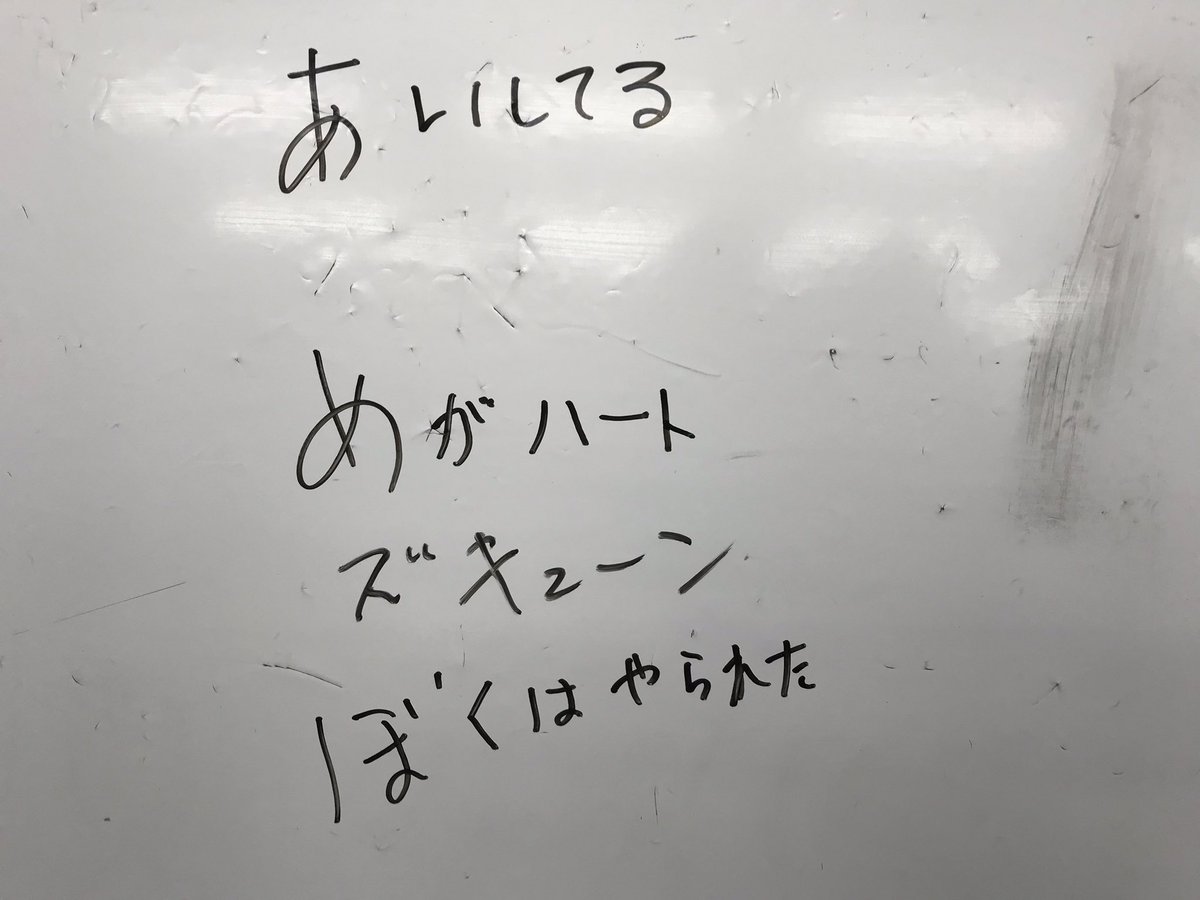 あいしてる
めがハート
ズキューン
ぼくはやられた